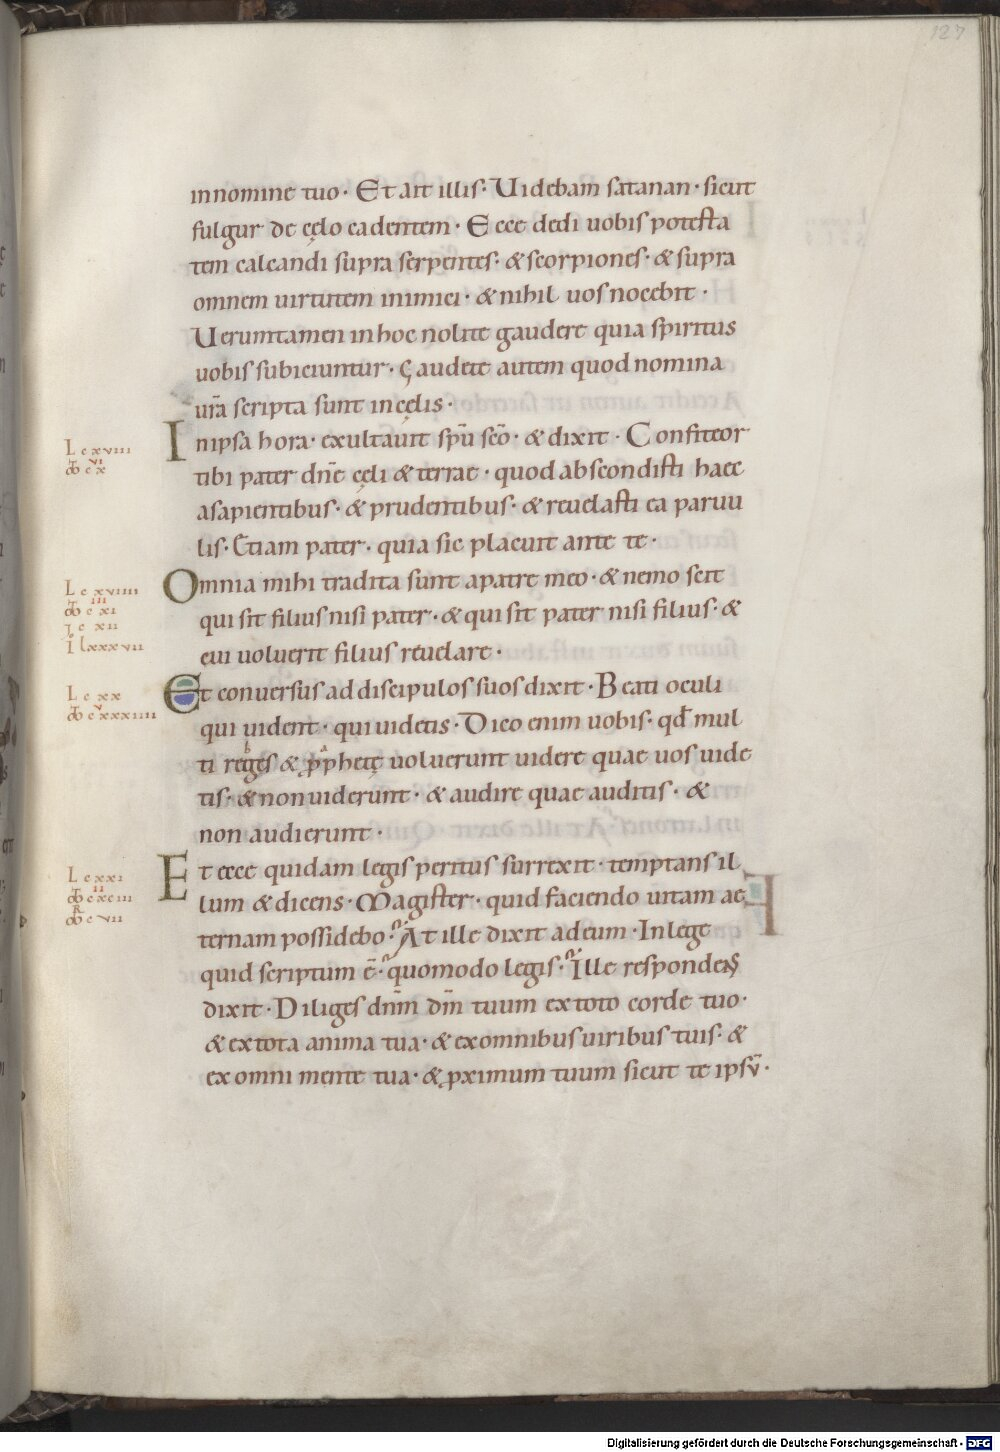 127
in nomine tuo · Et ait illis · Uidebam satanan · sicut
fulgur de cęlo cadentem · Ecce dedi uobis potesta
tem calcandi supra serpentes · & scorpiones · & supra
omnem uirtutem inimici · & nihil uos nocebit ·
Ueruntamen in hoc nolite gaudere quia spiritus
uobis subiciuntur · Gaudete autem quod nomina
ur̄a scripta sunt in cęlis ·
L c xviiii
In ipsa hora · exultauit sp̄u sc̄o · & dixit · Confiteor
tibi pater dn̄e cęli & terrae · quod abscondisti haec
a sapientibus · & prudentibus · & reuelasti ea paruu
lis · Etiam pater · quia sic placuit ante te ·
L c xviiii
Omnia mihi tradita sunt a patre meo · & nemo scit
qui sit filius nisi pater · & qui sit pater nisi filius · &
cui uoluerit filius reuelare ·
L c xx
Et conuersus ad discipulos suos dixit · Beati oculi
qui uident · qui uidetis · Dico enim uobis · qd̄ mul
ti reges & p̄phetę uoluerunt uidere quae uos uide
tis · & non uiderunt · & audire quae auditis · &
non audierunt ·
L c xxi
Et ecce quidam legis peritus surrexit · temptans il
lum & dicens · Magister · quid faciendo uitam ae
ternam possidebo · At ille dixit ad eum · In lege
quid scriptum ē · quomodo legis · Ille respondens
dixit · Diliges dn̄m dm̄ tuum ex toto corde tuo ·
& ex tota anima tua · & ex omnibus uiribus tuis · &
ex omni mente tua · & ꝓximum tuum sicut te ipsū ·
Digitalisierung gefördert durch die Deutsche Forschungsgemeinschaft - DFG